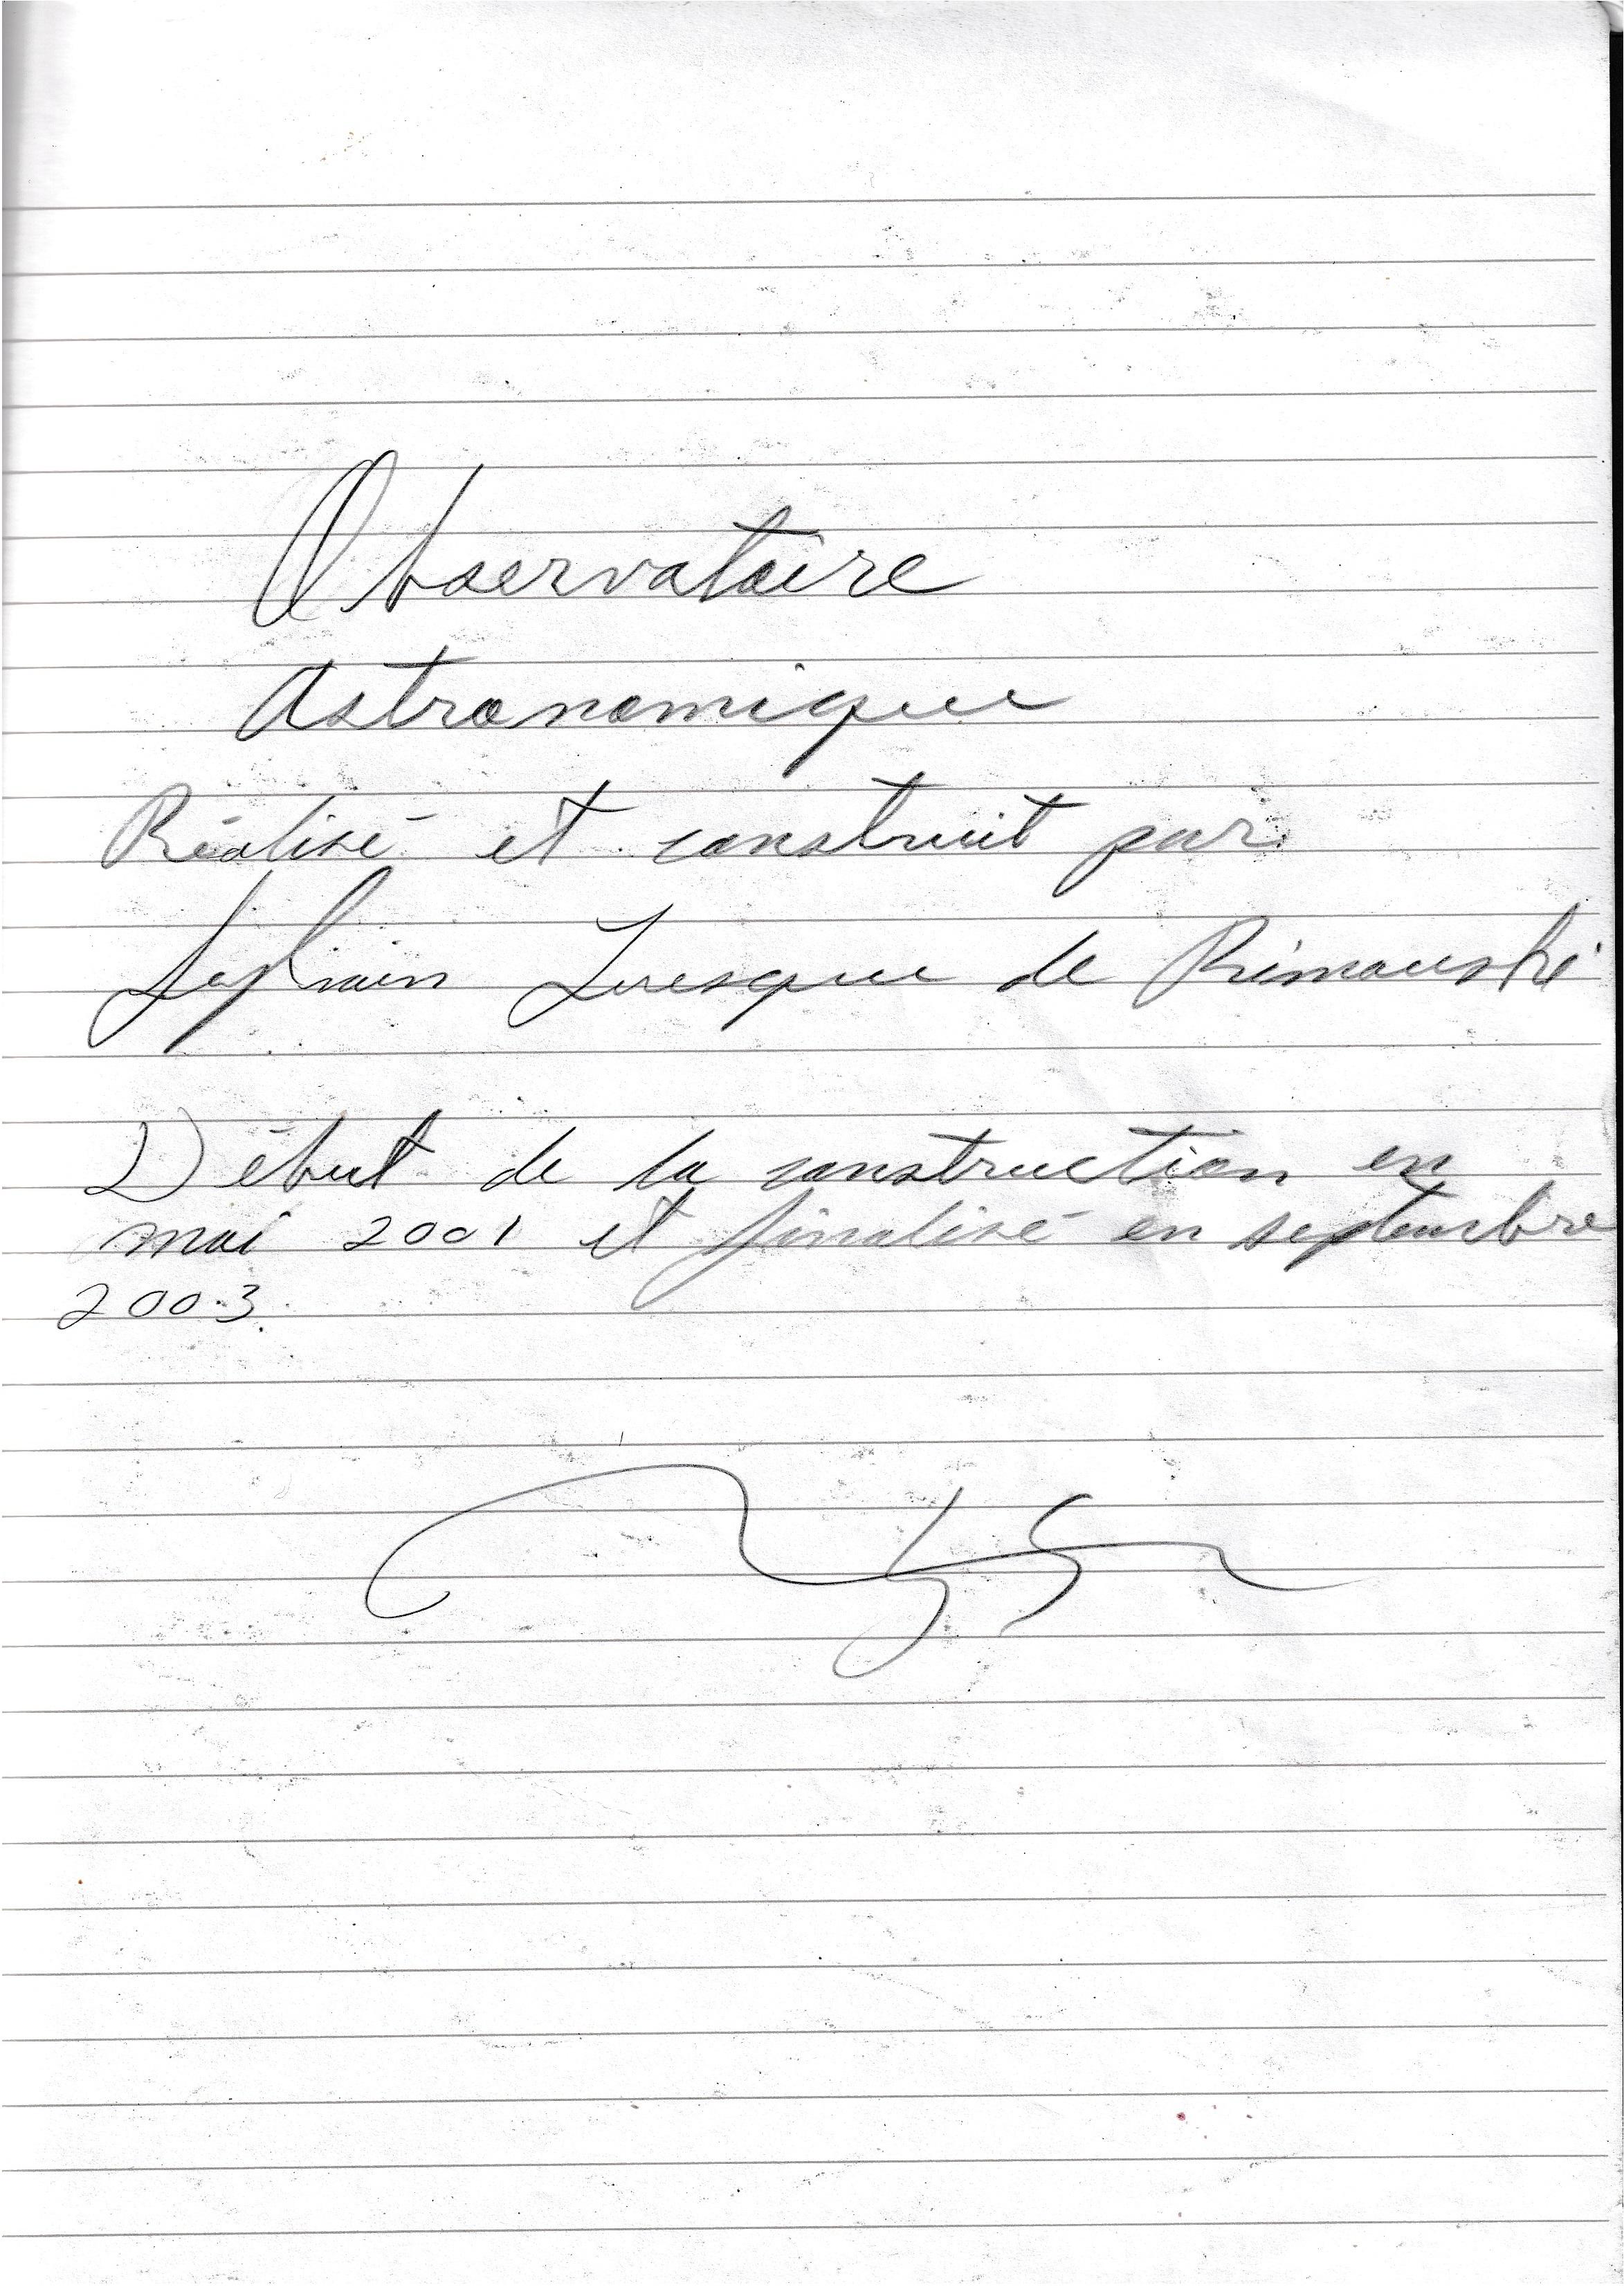 Observatoire
Astronomique
Réalisé et construit par
Sylvain Levesque de Rimouski
Début de la construction en
mai 2001 et finalisé en septembre
2003.